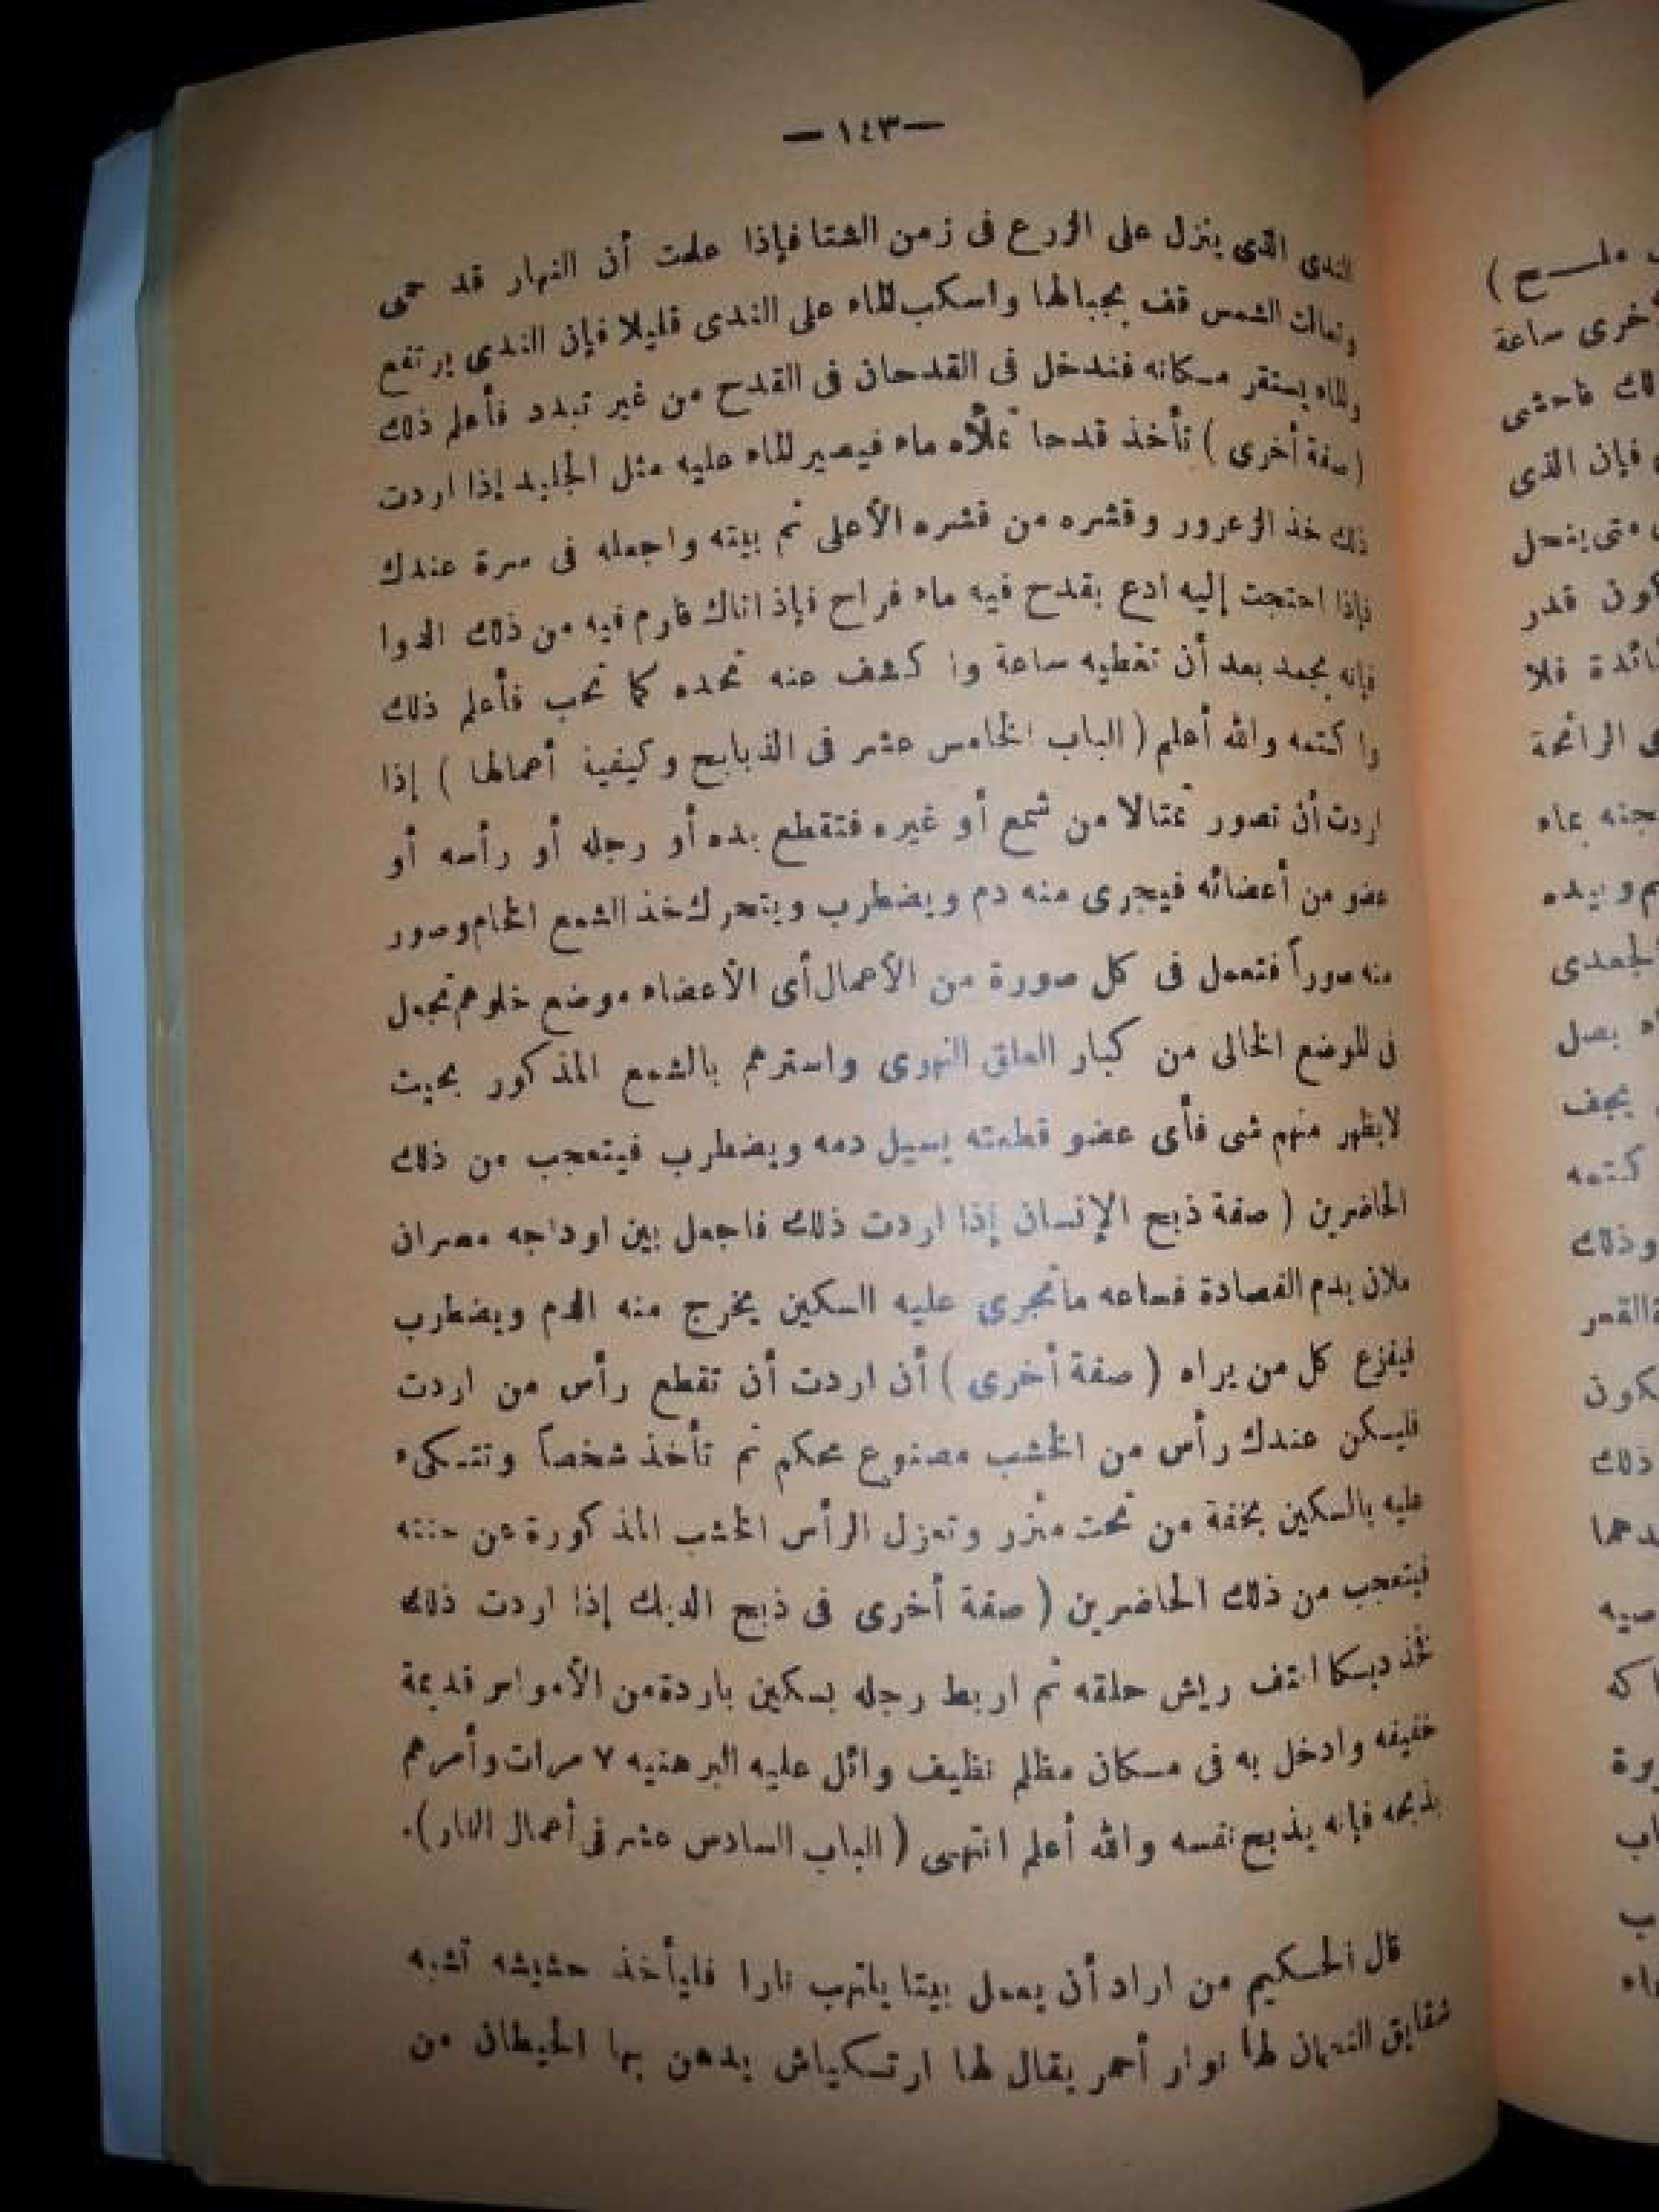 — ١٤٣ —
الندى الذى ينزل على الزرع فى زمن الشتا فإذا علمت أن النهار قد حمى
وتعالت الشمس قف بجبالها واسكب الماء على الندى قليلا فإن الندى يرتفع
والماء يستقر مكانه فندخل فى القدحان فى القدح من غير تبدد فأعلم ذلك
(صفة أخرى) تأخذ قدحا تملأه ماء فيصير الماء عليه مثل الجليد إذا اردت
ذلك خذ الزعرور وقشره من قشره الأعلى ثم بيته واجعله فى صرة عندك
فإذا احتجت إليه ادع بقدح فيه ماء قراح فإذ اتاك فارم فيه من ذلك الدوا
فإنه يجمد بعد أن تغطيه ساعة واكشف عنه تجده كما تحب فأعلم ذلك
واكتمه والله أعلم (الباب الخامس عشر فى الذبايح وكيفية أعمالها) إذا
اردت أن تصور تمثالا من شمع أو غيره فتقطع يده أو رجله أو رأسه أو
عضو من أعضائه فيجرى منه دم ويضطرب ويتحرك خذ الشمع الخام وصور
منه صوراً فتعمل فى كل صورة من الأعمال أى الأعضاء موضع خلوهم تجعل
فى الموضع الخالى من كبار العلق النهرى واسترهم بالشمع المذكور بحيث
لايظهر منهم شى فأى عضو قطعته يسيل دمه ويضطرب فيتعجب من ذلك
الحاضرين (صفة ذبح الإنسان إذا اردت ذلك فاجعل بين اوداجه مصران
ملان بدم الفصادة فساعه ماتجرى عليه السكين يخرج منه الدم ويضطرب
فيفزع كل من يراه (صفة أخرى) أن اردت أن تقطع رأس من اردت
فليكن عندك رأس من الخشب مصنوع محكم ثم تأخذ شخصاً وتتكىء
عليه بالسكين بخفة من تحت مئزر وتعزل الرأس الخشب المذكورة عن جثته
فيتعجب من ذلك الحاضرين (صفة أخرى فى ذبح الديك إذا اردت ذلك
فخذ ديكا انتف ريش حلقه ثم اربط رجله بسكين باردة من الأمواس قديمة
خفيفه وادخل به فى مكان مظلم نظيف واتل عليه البرهنيه ٧ مرات وأمرهم
بذبحه فإنه يذبح نفسه والله أعلم انتهى (الباب السادس عشر فى أعمال النار).
قال الحكيم من اراد أن يعمل بيتا يلتهب نارا فليأخذ حشيشه تشبه
شقايق النعمان لها نوار أحمر يقال لها ارتكياش يدهن بها الحيطان من